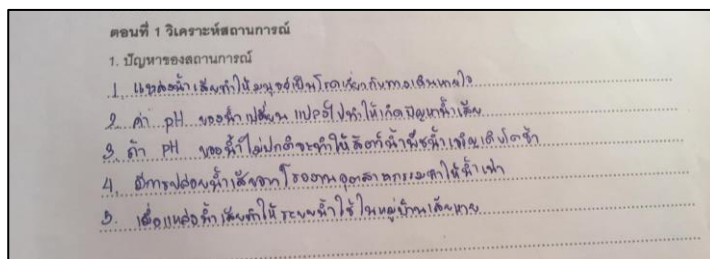 ตอนที่ 1 วิเคราะห์สถานการณ์
1. ปัญหาของสถานการณ์
1. แหล่งน้ำเสียทำให้มนุษย์เป็นโรคเกี่ยวกับทางเดินหายใจ
2. ค่า pH ของน้ำเปลี่ยนแปลงไปทำให้เกิดปัญหาน้ำเสีย
3. ถ้า pH ของน้ำไม่ปกติจะทำให้สัตว์น้ำพืชน้ำเจริญเติบโตช้า
4. มีการปล่อยน้ำเสียจากโรงงานอุตสาหกรรมทำให้น้ำเน่า
5. เมื่อแหล่งน้ำเสียทำให้ระบบน้ำใช้ในหมู่บ้านเสียหาย